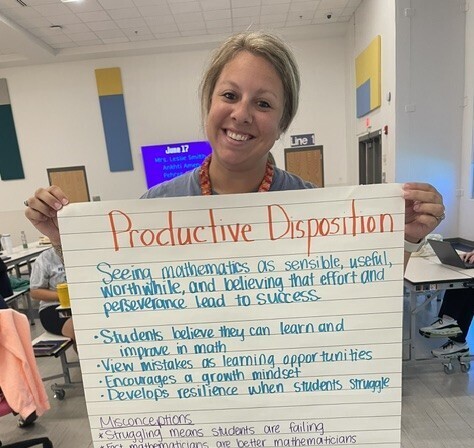 June 17
Mrs. Leslie Smith
Line 1
Productive Disposition
Seeing mathematics as sensible, useful,
worthwhile, and believing that effort and
perseverance lead to success
• Students believe they can learn and
improve in math
• View mistakes as learning opportunities
• Encourages a growth mindset
• Develops resilience when students struggle
Misconceptions
* Struggling means students are failing
* Fast mathematicians are better mathematicians